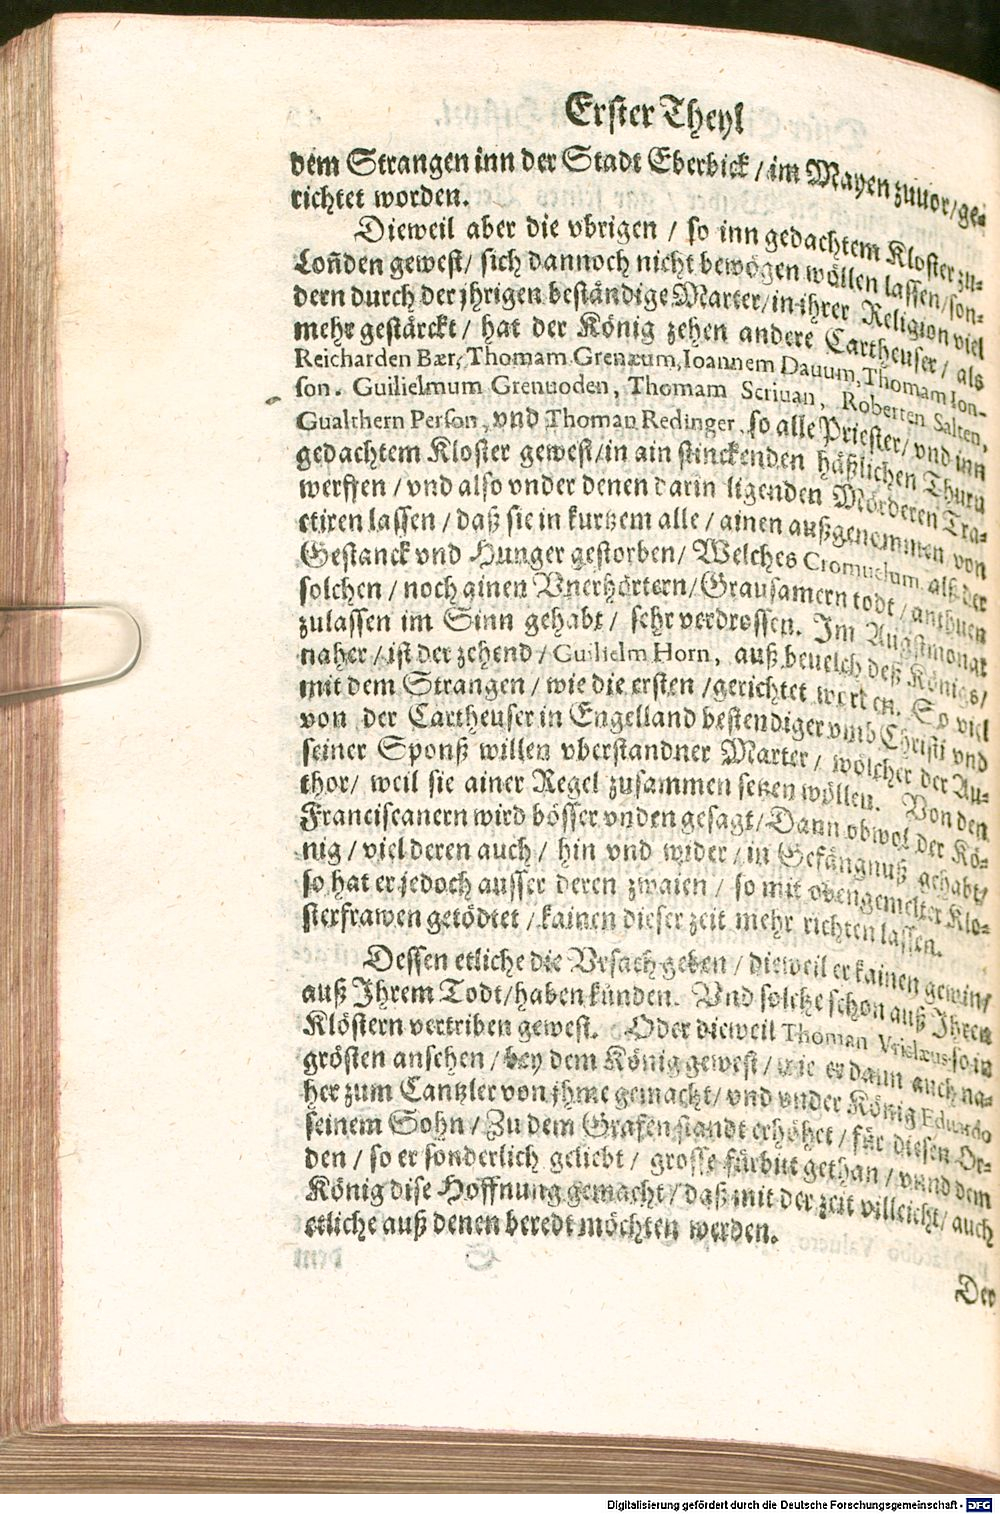 Erster Theyl
dem Strangen inn der Stadt Eberbick / im Mayen zuuor / ge-
richtet worden.
Dieweil aber die vbrigen / so inn gedachtem Kloster zu-
Loñden gewest / sich dannoch nicht bewögen wöllen lassen / son-
dern durch der jhrigen beständige Marter / in ihrer Religion viel
mehr gestärckt / hat der König zehen andere Cartheuser / als
Reicharden Bær, Thomam Grenæum, Ioannem Dauum, Thomam Ion-
son. Guilielmum Grenuoden, Thomam Scriuan, Roberten Salten,
Gualthern Person, vnd Thoman Redinger, so alle Priester / vnd inn
gedachtem Kloster gewest / in ain stinckenden häßlichen Thurn
werffen / vnd also vnder denen darin ligenden Mörderen Tra-
ctiren lassen / daß sie in kurtzem alle / ainen außgenommen / von
Gestanck vnd Hunger gestorben / Welches Cromuelum, alß der
solchen / noch ainen Vnerhörtern / Grausamern todt / anthuen
zulassen im Sinn gehabt / sehr verdrossen. Im Augstmonat
naher / ist der zehend / Guilielm Horn, auß beuelch deß Königs /
mit dem Strangen / wie die ersten / gerichtet worden. So viel
von der Cartheuser in Engelland bestendiger vmb Christi vnd
seiner Sponß willen vberstandner Marter / wölcher der Au-
thor / weil sie ainer Regel zusammen setzen wöllen. Von den
Franciscanern wird bösser vnden gesagt / Dann obwol der Kö-
nig / viel deren auch / hin vnd wider / in Gefängnuß gehabt /
so hat er jedoch ausser deren zwaien / so mit obengemelter Klo-
sterfrawen getödtet / kainen dieser zeit mehr richten lassen.
Dessen etliche die Vrsach geben / dieweil er kainen gewin /
auß Ihrem Todt / haben künden. Vnd solche schon auß Ihren
Klöstern vertriben gewest. Oder dieweil Thoman Vrislæus so in
grösten ansehen / bey dem König gewest / wie er dann auch na-
her zum Cantzler von jhme gemacht / vnd vnder König Eduardo
seinem Sohn / Zu dem Grafenstandt erhöhet / für diesen Or-
den / so er sonderlich geliebt / grosse fürbit gethan / vnnd dem
König dise Hoffnung gemacht / daß mit der zeit villeicht / auch
etliche auß denen beredt möchten werden.
Der
Digitalisierung gefördert durch die Deutsche Forschungsgemeinschaft - DFG